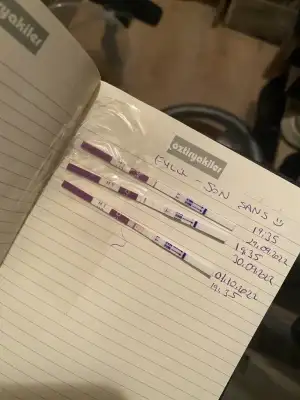 öztiryakiler
öztiryakiler
EYLÜL SON ŞANS
19.35
29.09.2022
19.35
30.09.2022
01.10.2022
19.35